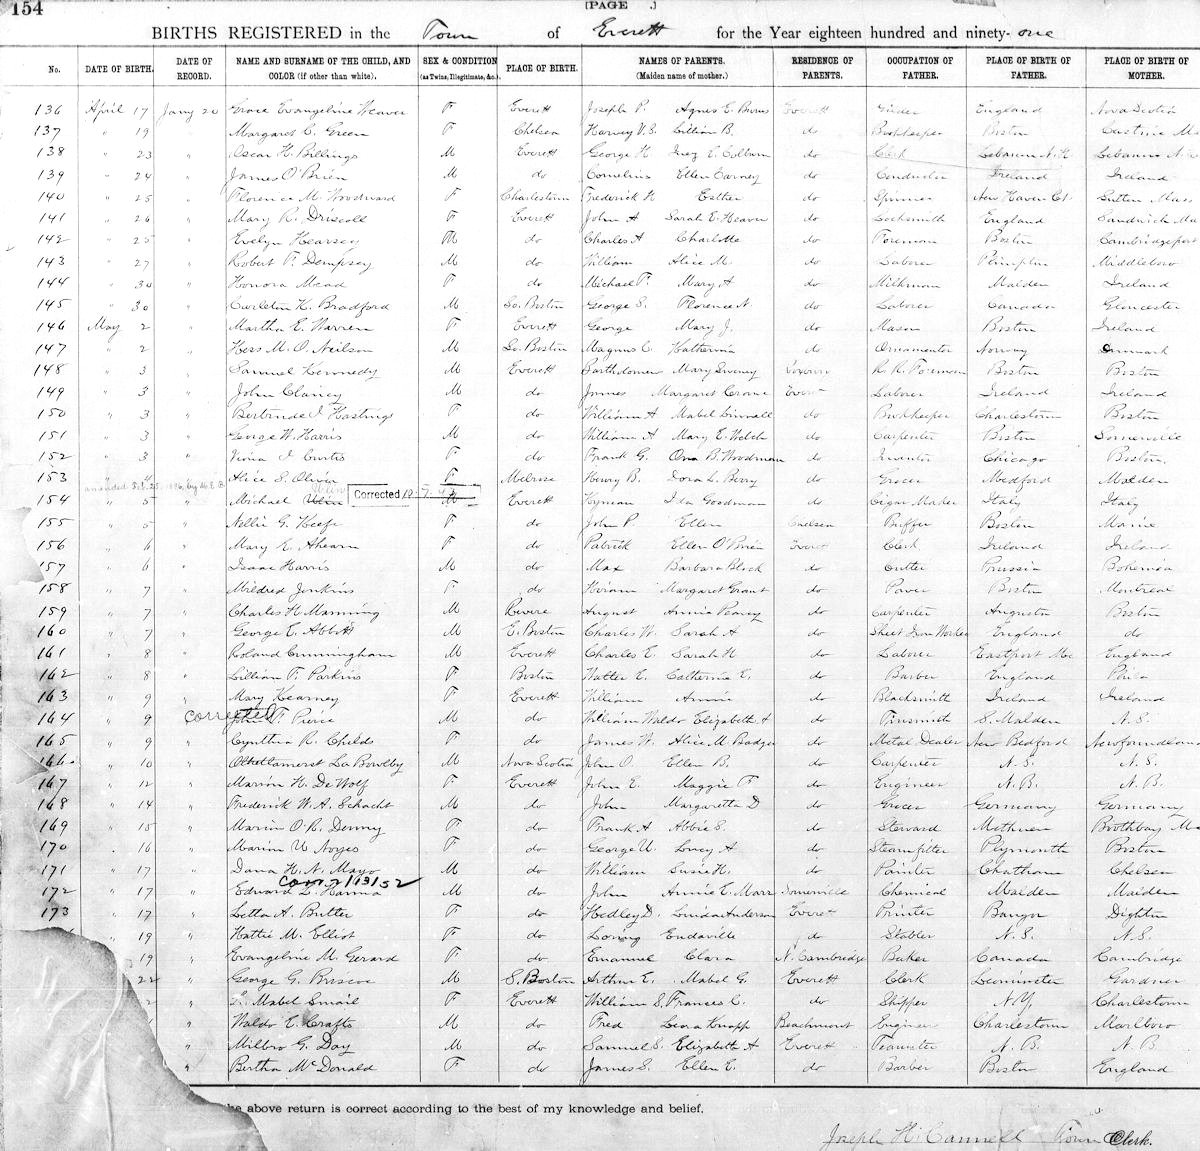 154
[PAGE .]
BIRTHS REGISTERED in the Town of Everett for the Year eighteen hundred and ninety-one
No. DATE OF BIRTH. DATE OF RECORD. NAME AND SURNAME OF THE CHILD, AND COLOR (if other than white). SEX & CONDITION (as Twins, Illegitimate, &c.) PLACE OF BIRTH. NAMES OF PARENTS. (Maiden name of mother.) RESIDENCE OF PARENTS. OCCUPATION OF FATHER. PLACE OF BIRTH OF FATHER. PLACE OF BIRTH OF MOTHER.
136 April 17 Jany 20 Grace Evangeline Weaver F Everett Joseph P. Agnes E. Burns Everett Girder England Nova Scotia
137 " 19 " Margaret C. Green F Chelsea Harvey V.S. Lillian B. do Bookkeeper Boston Castine Me
138 " 23 " Oscar H. Billings M Everett George H Inez E. Colburn do Clerk Lebanon N.H Lebanon N.H
139 " 24 " James O'Brien M do Cornelius Ellen Carney do Conductor Ireland Ireland
140 " 25 " Florence M. Woodward F Charlestown Frederick N Esther do Spinner New Haven Ct. Sutton Mass
141 " 26 " Mary R. Driscoll F Everett John A Sarah E. Heaver do Locksmith England Sandwich Ma
142 " 25 " Evelyn Kearsey M do Charles A Charlotte do Foreman Boston Cambridgeport
143 " 27 " Robert F. Dempsey M do William Alice M do Laborer Plimpton Middleboro
144 " 30 " Honora Mead F do Michael F. Mary A do Milkman Malden Ireland
145 " 30 " Carleton K. Bradford M So. Boston George S. Florence N. do Laborer Canada Gloucester
146 May 2 " Martha E. Warren F Everett George Mary J. do Mason Boston Ireland
147 " 2 " Hess M. O. Neilson M So. Boston Magnus C. Katherina do Ornamenter Norway Denmark
148 " 3 " Samuel Kennedy M Everett Bartholomew Mary Sweney Roxbury R.R. Foreman Boston Boston
149 " 3 " John Clancy M do James Margaret Crane Everett Laborer Ireland Ireland
150 " 3 " Bertrude I Hastings F do William A Mabel Linnall do Bookkeeper Charlestown Boston
151 " 3 " George W. Harris M do William A Mary E. Welch do Carpenter Boston Somerville
152 " 3 " Viola I Curtis F do Frank G. Ona B. Woodman do Inventor Chicago Boston.
153 " 4 " Alice S. Oliver F Melrose Henry B. Dora L. Berry do Grocer Medford Malden
amended Feb. 25. 1896, by M.E.B.
154 " 5 " Michael Corrected M Everett Hyman Ida Goodman do Cigar Maker Italy Italy
155 " 5 " Nellie G. Keefe F do John P. Ellen Chelsea Buffer Boston Maine
156 " 6 " Mary K. Ahearn F do Patrick Ellen O'Brien Everett Clerk Ireland Ireland
157 " 6 " Isaac Harris M do Max Barbara Block do Cutter Prussia Bohemia
158 " 7 " Mildred Jenkins F do Hiram Margaret Grant do Paver Boston Montreal
159 " 7 " Charles H. Manning M Revere August Annie Peavey do Carpenter Augusta Boston
160 " 7 " George E. Abbott M E. Boston Charles W. Sarah A do Sheet Iron Worker England do
161 " 8 " Roland Cunningham M Everett Charles E. Sarah H do Laborer Eastport Me England
162 " 8 " Lillian F. Parkins F Boston Walter E. Catherine E. do Barber England Phila
163 " 9 " Mary Kearney F Everett William Annie do Blacksmith Ireland Ireland
164 " 9 corrected John F Pierce M do William Waldo Elizabeth A do Tinsmith S. Malden N.S.
165 " 9 " Cynthia R. Childs F do James W. Alice M. Badger do Metal Dealer New Bedford Newfoundland
166 " 10 " La Bowlby M Nova Scotia John O. Ellen B. do Carpenter N.S. N.S.
167 " 12 " Marion H. De Wolf F Everett John E. Maggie F do Engineer N.B. N.B.
168 " 14 " Frederick W. A. Schacht M do John Margaretta D do Grocer Germany Germany
169 " 15 " Marion O.R. Denny F do Frank A Abbie S. do Steward Methuen Boothbay Me
170 . 16 " Marion U Noyes F do George U. Loney A do Steamfitter Plymouth Boston
171 " 17 " Dana H. N. Mayo M do William Susie H. do Painter Chatham Chelsea
Corr. 2/13/52
172 " 17 " Edward L. Hanna M do John Annie E. Marr Somerville Chemical Malden Malden
173 " 17 " Letta A. Butler F do Hedley D. Louisa Anderson Everett Printer Bangor Dighton
" 19 " Hattie M. Elliot F do Loring Eudaville do Stabler N.S. N.S.
19 " Evangeline M. Gerard F do Emanuel Clara N. Cambridge Baker Canada Cambridge
22 " George G. Briscoe M S. Boston Arthur E. Mabel G. Everett Clerk Leominster Gardner
2 " E. Mabel Smail F Everett William S. Frances C. do Skipper N.Y. Charlestown
" Waldo E. Crafts M do Fred Leora Knapp Beachmont Engineer Charlestown Marlboro
" Milbro G. Day M do Samuel S. Elizabeth A Everett Teamster N.B. N B.
" Bertha McDonald F do James S. Ellen E. do Barber Boston England
he above return is correct according to the best of my knowledge and belief.
Joseph H. Cannell Town Clerk.